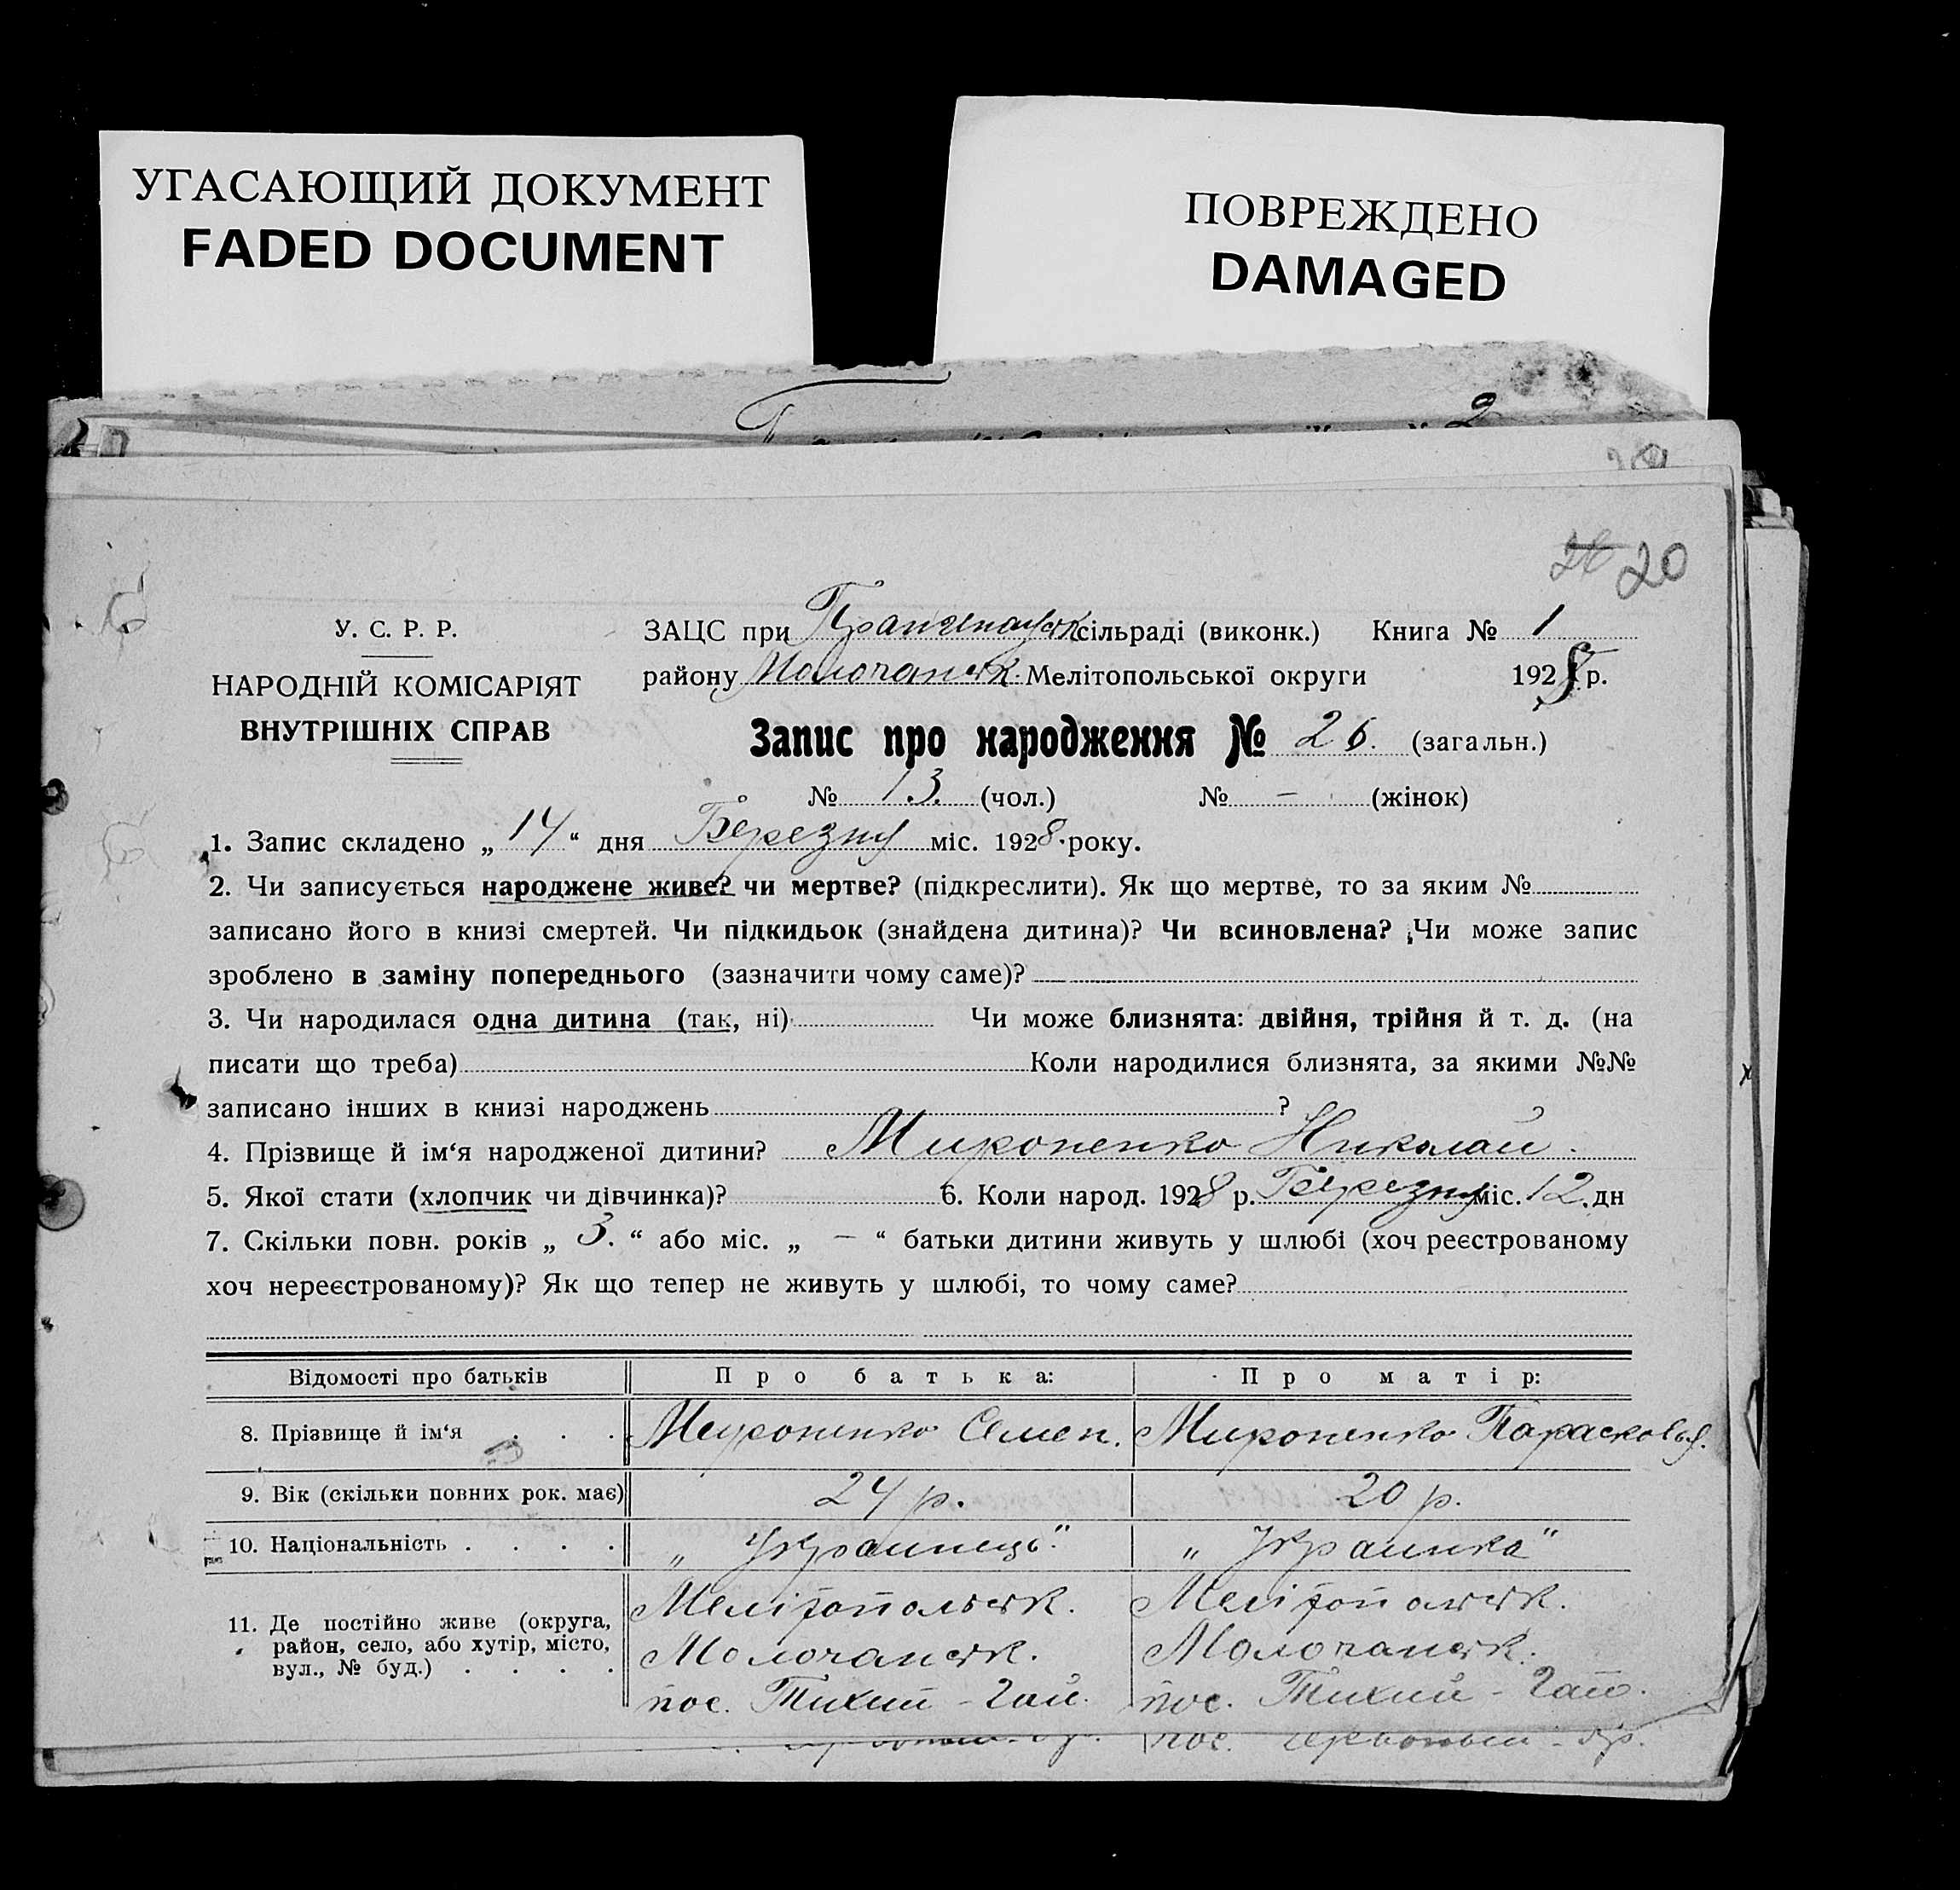 УГАСАЮЩИЙ ДОКУМЕНТ
FADED DOCUMENT
ПОВРЕЖДЕНО
DAMAGED
2
20
У. С. Р. Р.
НАРОДНІЙ КОМІСАРІЯТ
ВНУТРІШНІХ СПРАВ
ЗАЦС при сільраді (виконк.) Книга № 1
району Молочанськ. Мелітопольської округи 1928 р.
Запис про народження № 26. (загальн.)
№ 13. (чол.) № – (жінок)
1. Запис складено „ 14 “ дня Березня міс. 1928 року.
2. Чи записується народжене живе? чи мертве? (підкреслити). Як що мертве, то за яким №
записано його в книзі смертей. Чи підкидьок (знайдена дитина)? Чи всиновлена? Чи може запис
зроблено в заміну попереднього (зазначити чому саме)?
3. Чи народилася одна дитина (так, ні) Чи може близнята: двійня, трійня й т. д. (на
писати що треба) Коли народилися близнята, за якими №№
записано інших в книзі народжень ?
4. Прізвище й ім‘я народженої дитини? Мироненко Николай.
5. Якої стати (хлопчик чи дівчинка)? 6. Коли народ. 1928 р. Березня міс. 12. дн
7. Скільки повн. років „ 3. “ або міс. „ – “ батьки дитини живуть у шлюбі (хоч реєстрованому
хоч нереєстрованому)? Як що тепер не живуть у шлюбі, то чому саме?
Відомості про батьків Про батька: Про матір:
8. Прізвище й ім‘я . . . Мироненко Семен. Мироненко Парасковья.
9. Вік (скільки повних рок. має) 24 р. 20 р.
10. Національність . . . . „ Украинець." „ Украинка"
11. Де постійно живе (округа, район, село, або хутір, місто, вул., № буд.) . . . .
Мелітопольськ. Мелітопольськ.
Молочанськ. Молочанськ.
пос. Тихий - Гай. пос. Тихий - Гай.
пос.